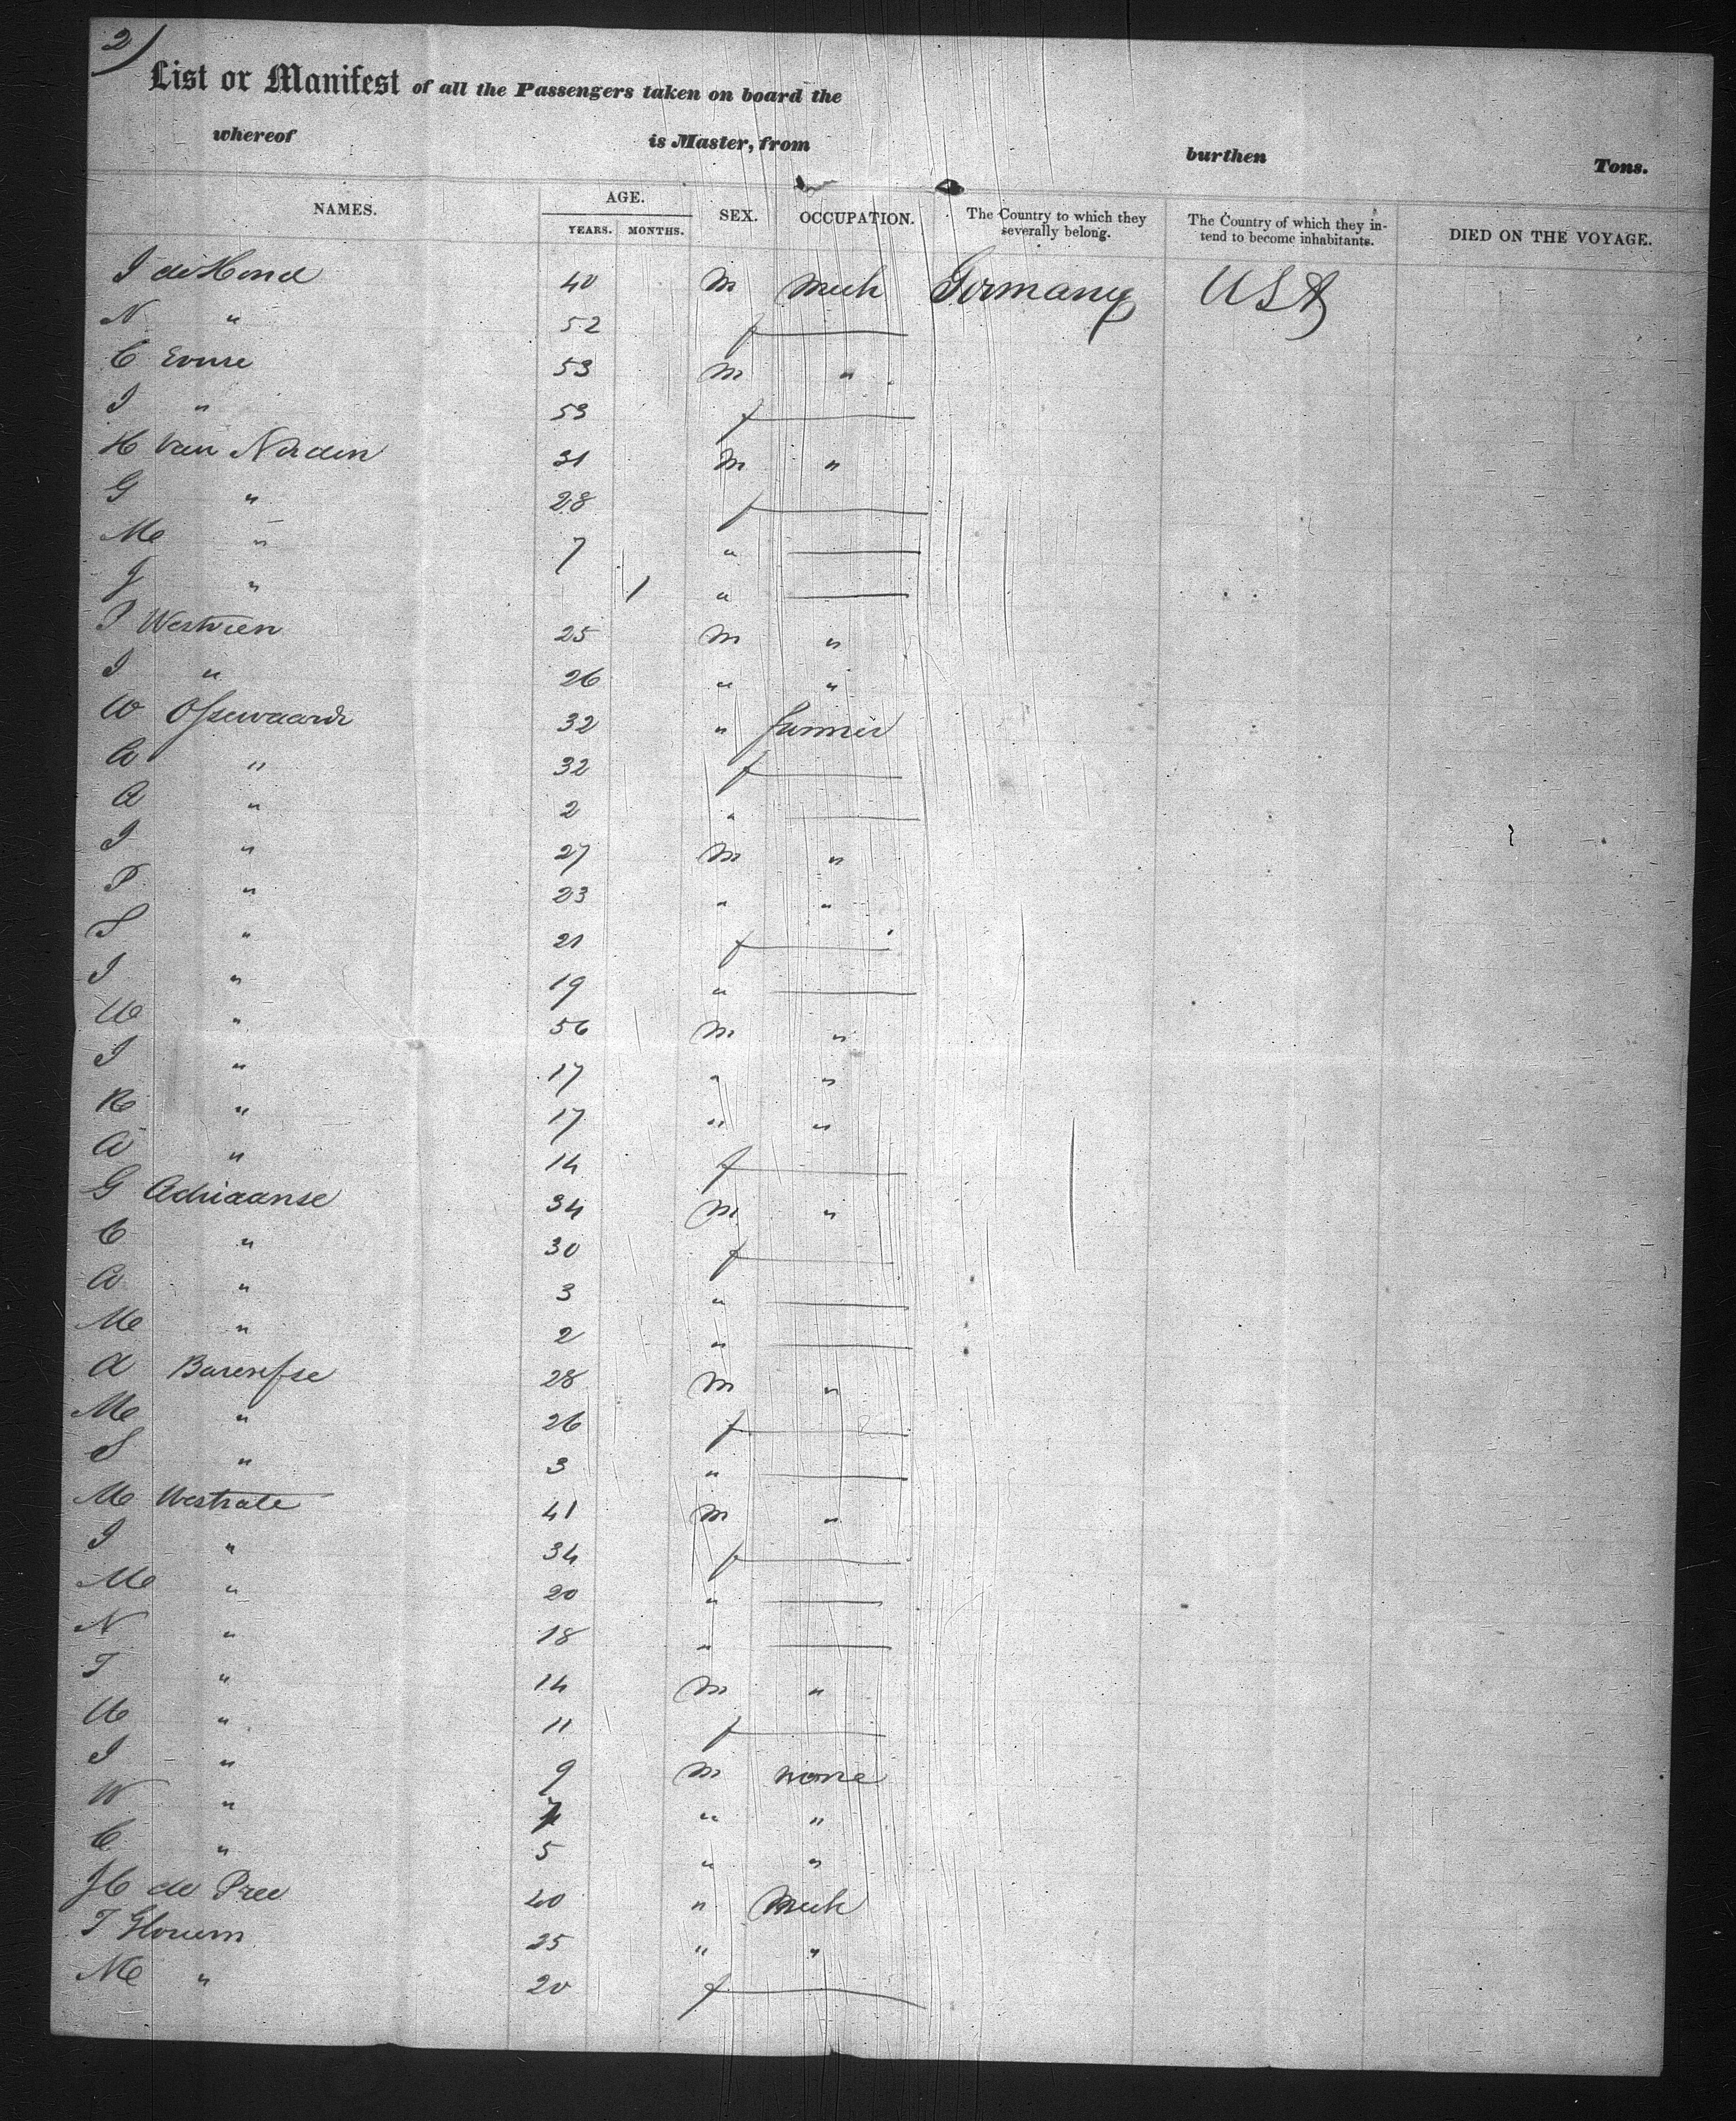 2)
List or Manifest of all the Passengers taken on board the
whereof is Master, from burthen Tons.
NAMES. AGE. YEARS. MONTHS. SEX. OCCUPATION. The Country to which they severally belong. The Country of which they intend to become inhabitants. DIED ON THE VOYAGE.
I de Hond 40 m Mech Germany USA
N " 52 f —
C Everse 53 m "
I " 53 f —
H Van Norden 31 m "
G " 28 f —
M " 7 " —
J " 1 " —
P 25 m "
I " 26 " "
W Ossewaarde 32 " farmer
A " 32 f —
A " 2 " —
I " 27 m "
P " 23 " "
S " 21 f —
I " 19 " —
" 56 m "
I " 17 " "
" 17 " "
A " 14 f —
G Adriaanse 34 m "
C " 30 f —
A " 3 " —
M " 2 " —
A Barensse 28 m "
M " 26 f —
S " 3 " —
M Westrate 41 m "
I " 34 f —
M " 20 " —
N " 18 " —
T " 14 m "
" 11 f —
I " 9 m none
W " " "
C " 5 " "
de Pree 20 " Mech
T 25 " "
M " 20 f —